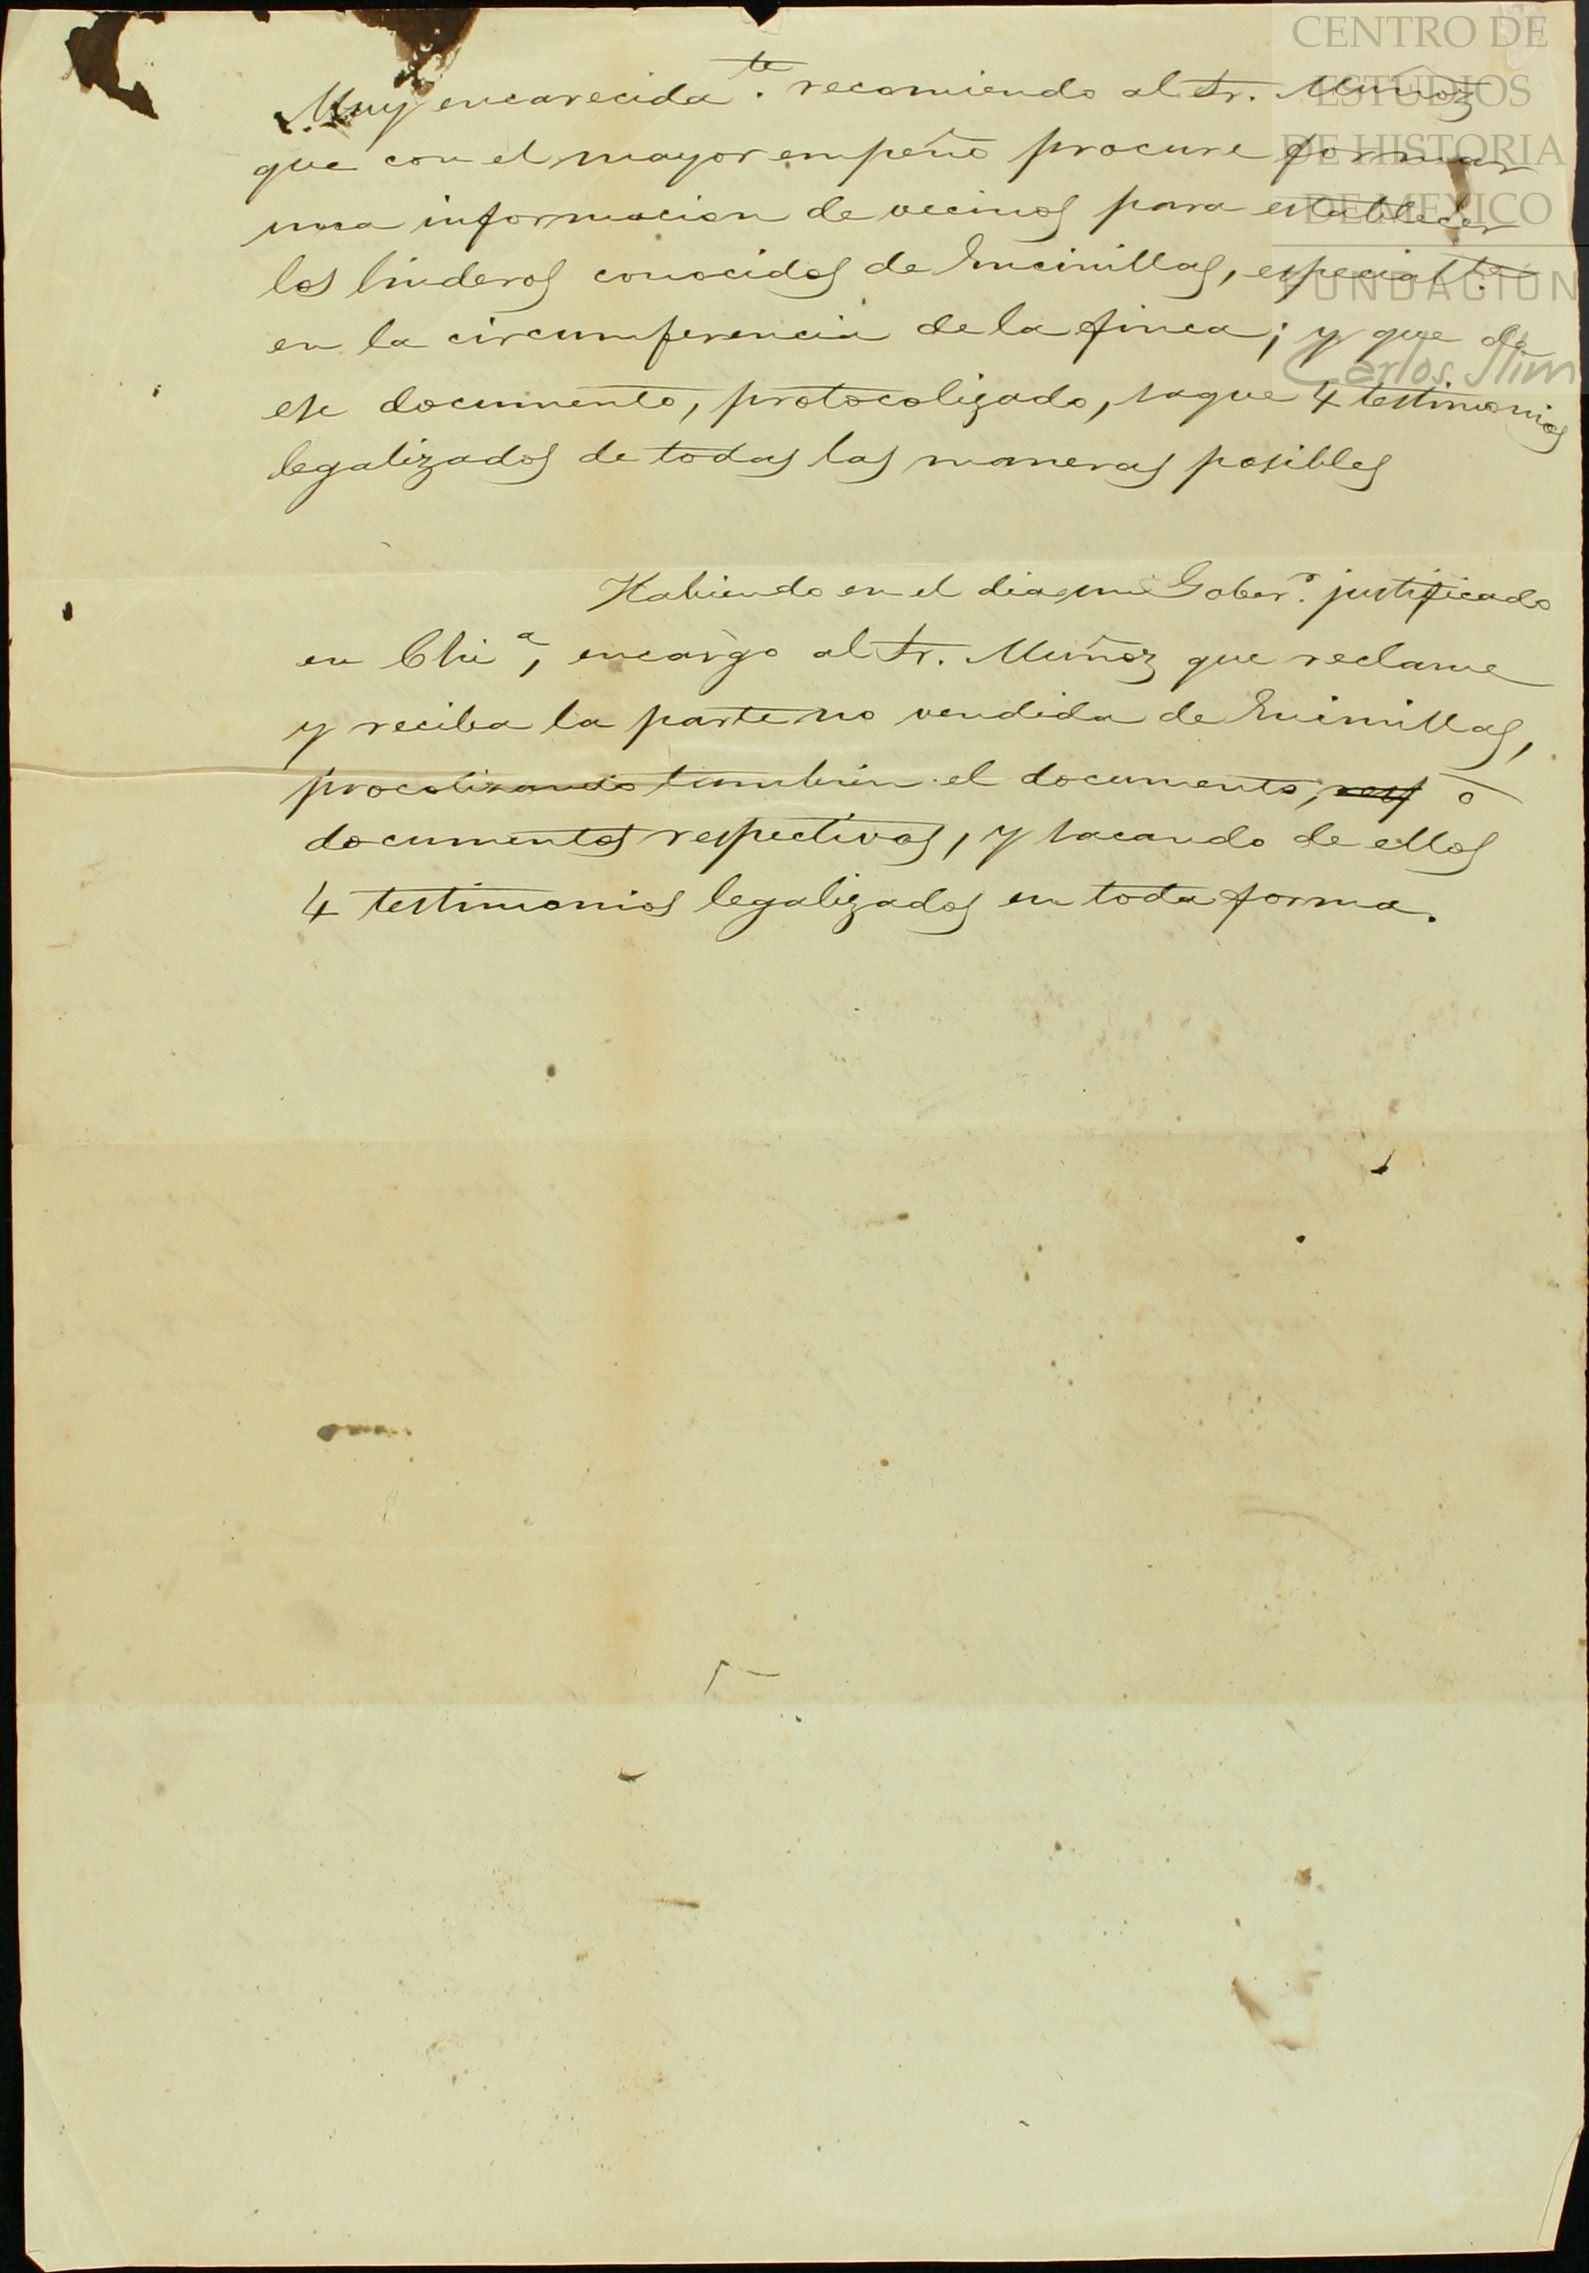 CENTRO DE
ESTUDIOS
DE HISTORIA
DE MEXICO
FUNDACIÓN
Carlos Slim
Muy encarecida.te recomiendo al Sr. Muñoz
que con el mayor empeño procure formar
una informacion de vecinos para establecer
los linderos conocidos de Encinillas, especial.te
en la circumferencia de la finca; y que de
ese documento, protocolizado, saque 4 testimonios
legalizados de todas las maneras posibles
Habiendo en el dia un Gober.o justificado
en Chi.a, encargo al Sr. Muñoz que reclame
y reciba la parte no vendida de Encinillas,
procolizando tambien el documento, ó
documentos respectivos, y sacando de ellos
4 testimonios legalizados en toda forma.